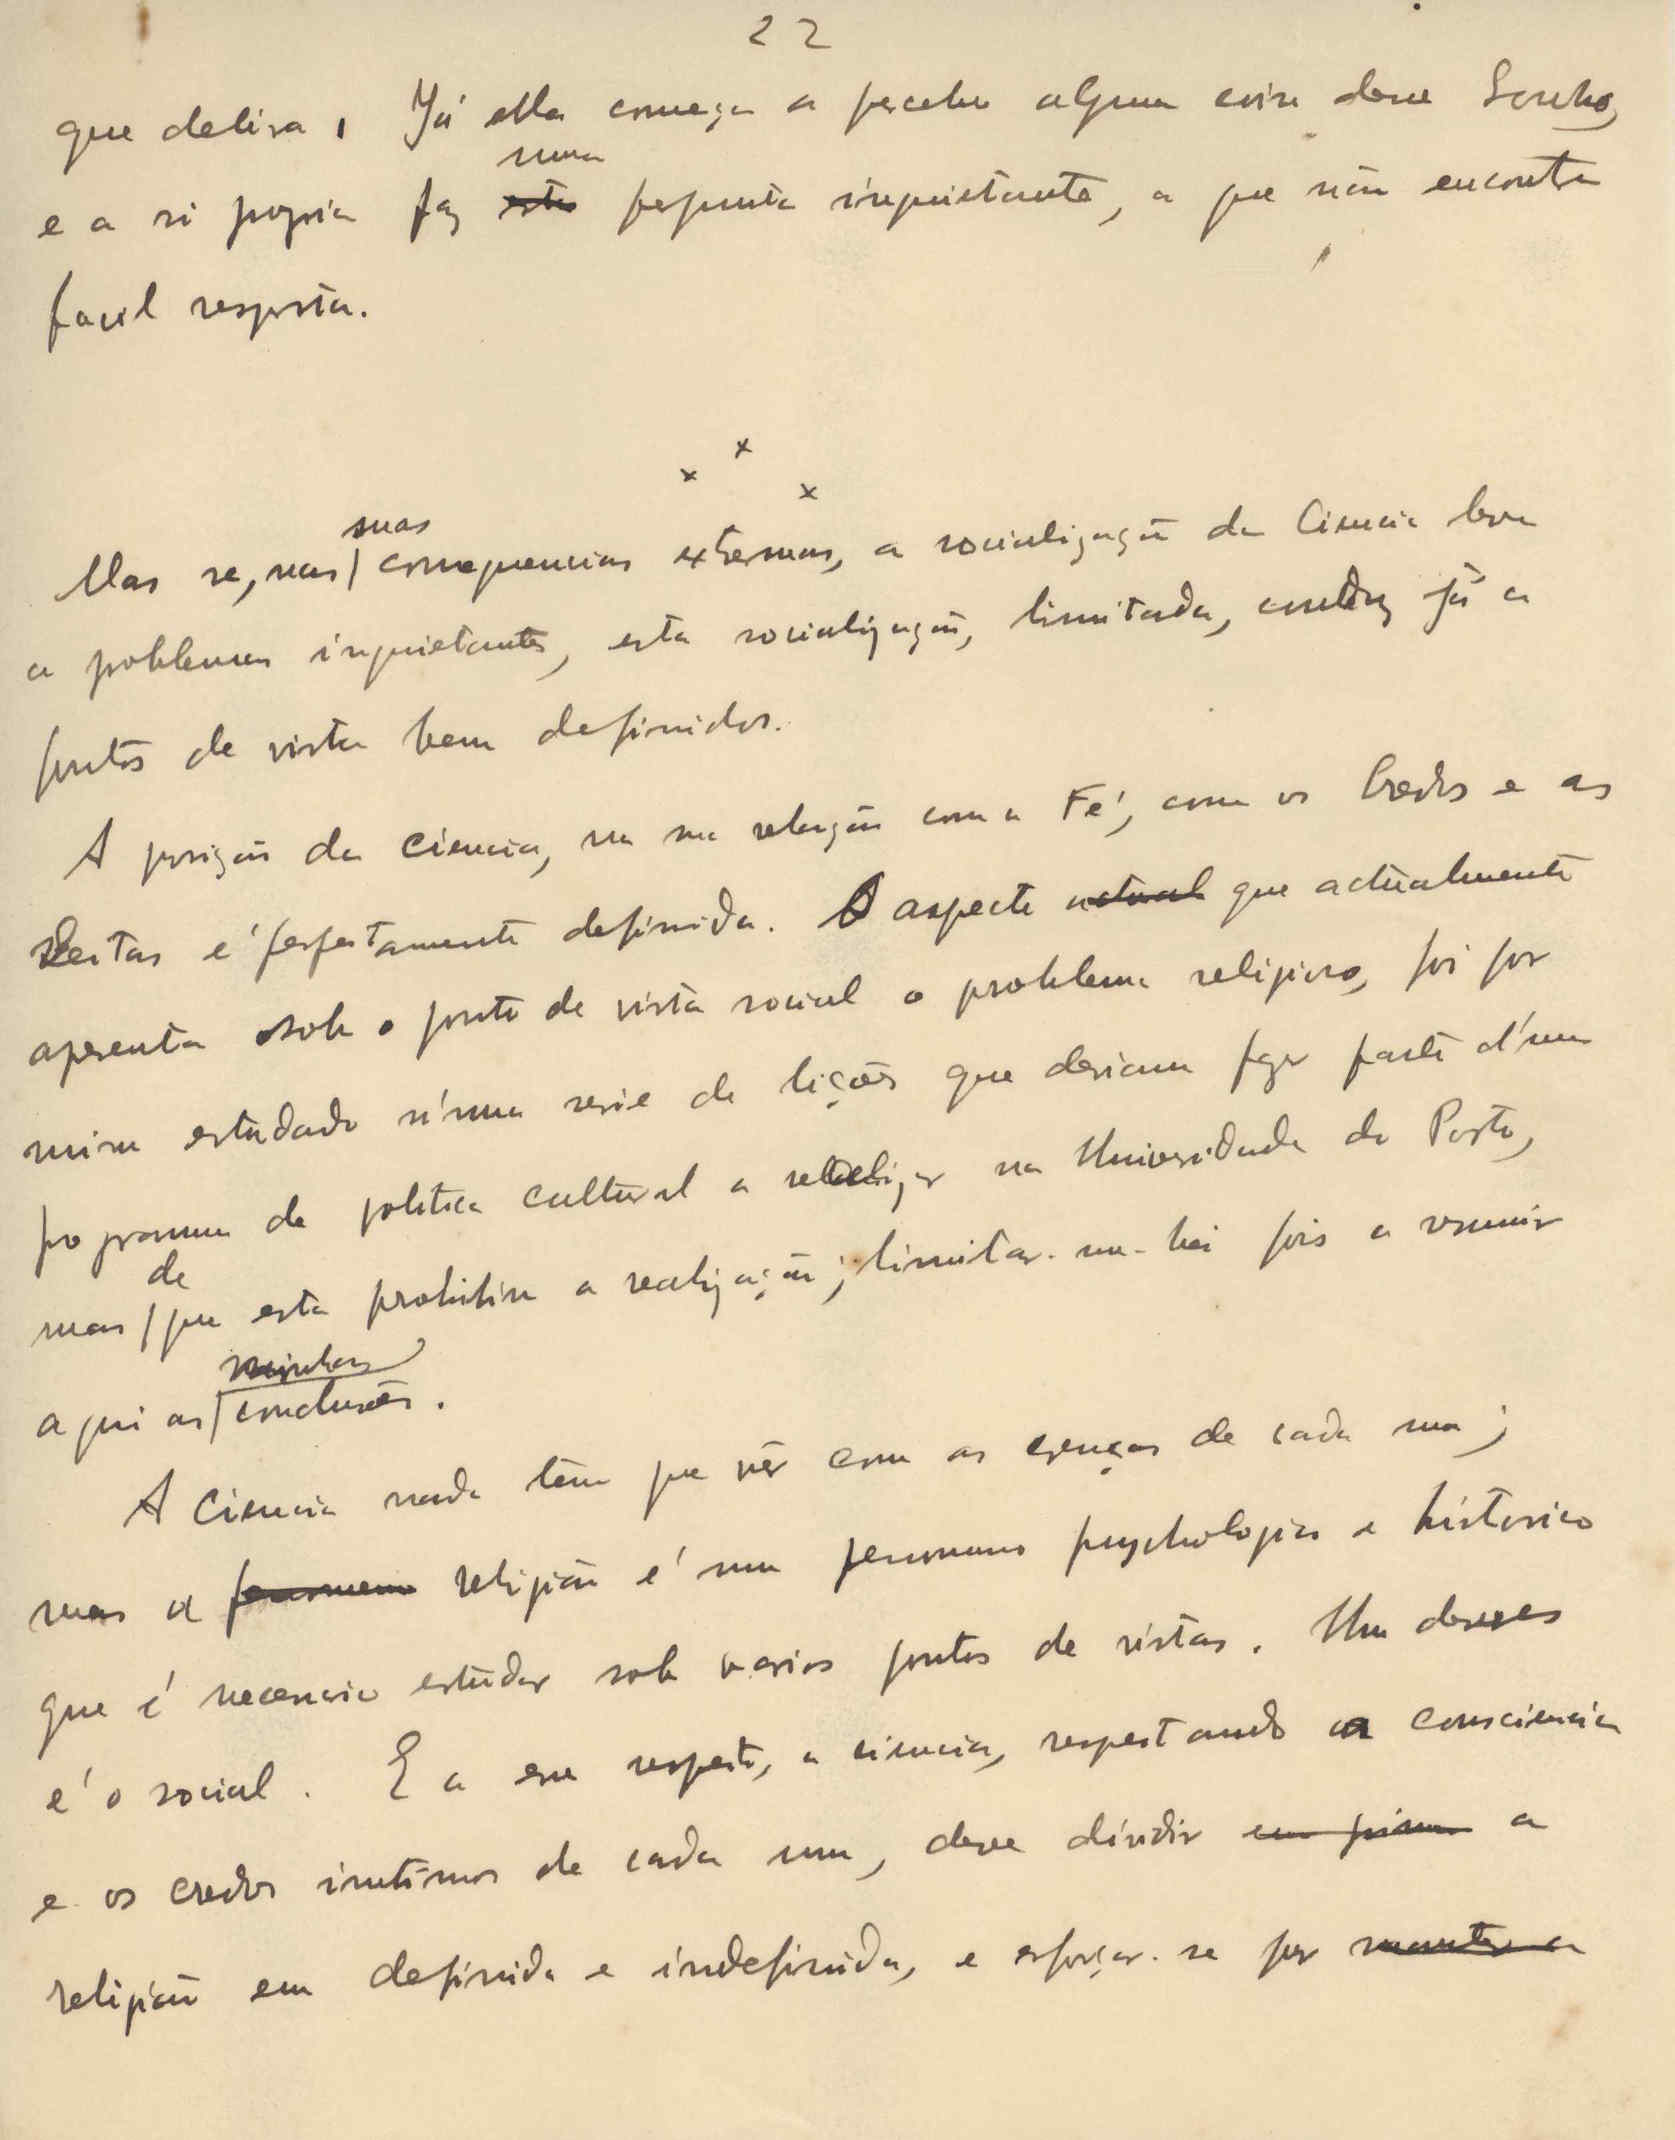 22
que delira, Já ella começa a perceber alguma coisa desse Sonho,
uma
e a si propria faz esta pergunta inquietante, a que não encontra
facil resposta.
x x x
suas
Mas se, nas consequencias extremas, a socialização da Ciencia leva
a problemas inquietantes, esta socialização, limitada, conduz já a
pontos de vista bem definidos.
A posição da Ciencia, na sua relação com a Fé, com os Credos e as
Seitas é perfeitamente definida. O aspecto actual que actualmente
apresenta sob o ponto de vista social o problema religioso, foi por
mim estudado n'uma serie de lições que deviam fazer parte d'um
programa de politica cultural a realizar na Universidade do Porto,
de
mas que esta prohibiu a realização; limitar-me-hei pois a resumir
minhas
aqui as conclusões.
A Ciencia nada tem que vêr com as crenças de cada um;
mas a fenomeno religião é um fenomeno psychologico e historico
que é necessario estudar sob varios pontos de vistas. Um desses
é o social. E a esse respeito, a ciencia, respeitando a consciencia
e os credos intimos de cada um, deve dividir em a
religião em definida e indefinida, e esforçar-se por manter a